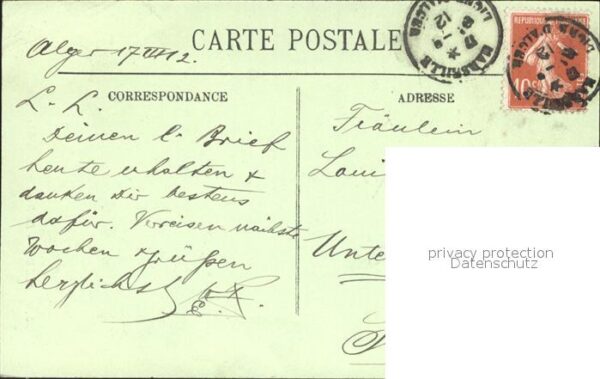 Alger 17 III 12.
CARTE POSTALE
MARSEILLE
LIGNE D'ALGER
12
MARSEILLE
LIGNE D'ALGER
12
REPUBLIQUE FRANÇAISE
10
CORRESPONDANCE
ADRESSE
L. L.
Deinen l. Brief
heute erhalten &
danken Dir bestens
dafür. Verreisen nächste
Wochen & grüßen
herzlichst
Fräulein
Loui
Unte
privacy protection
Datenschutz